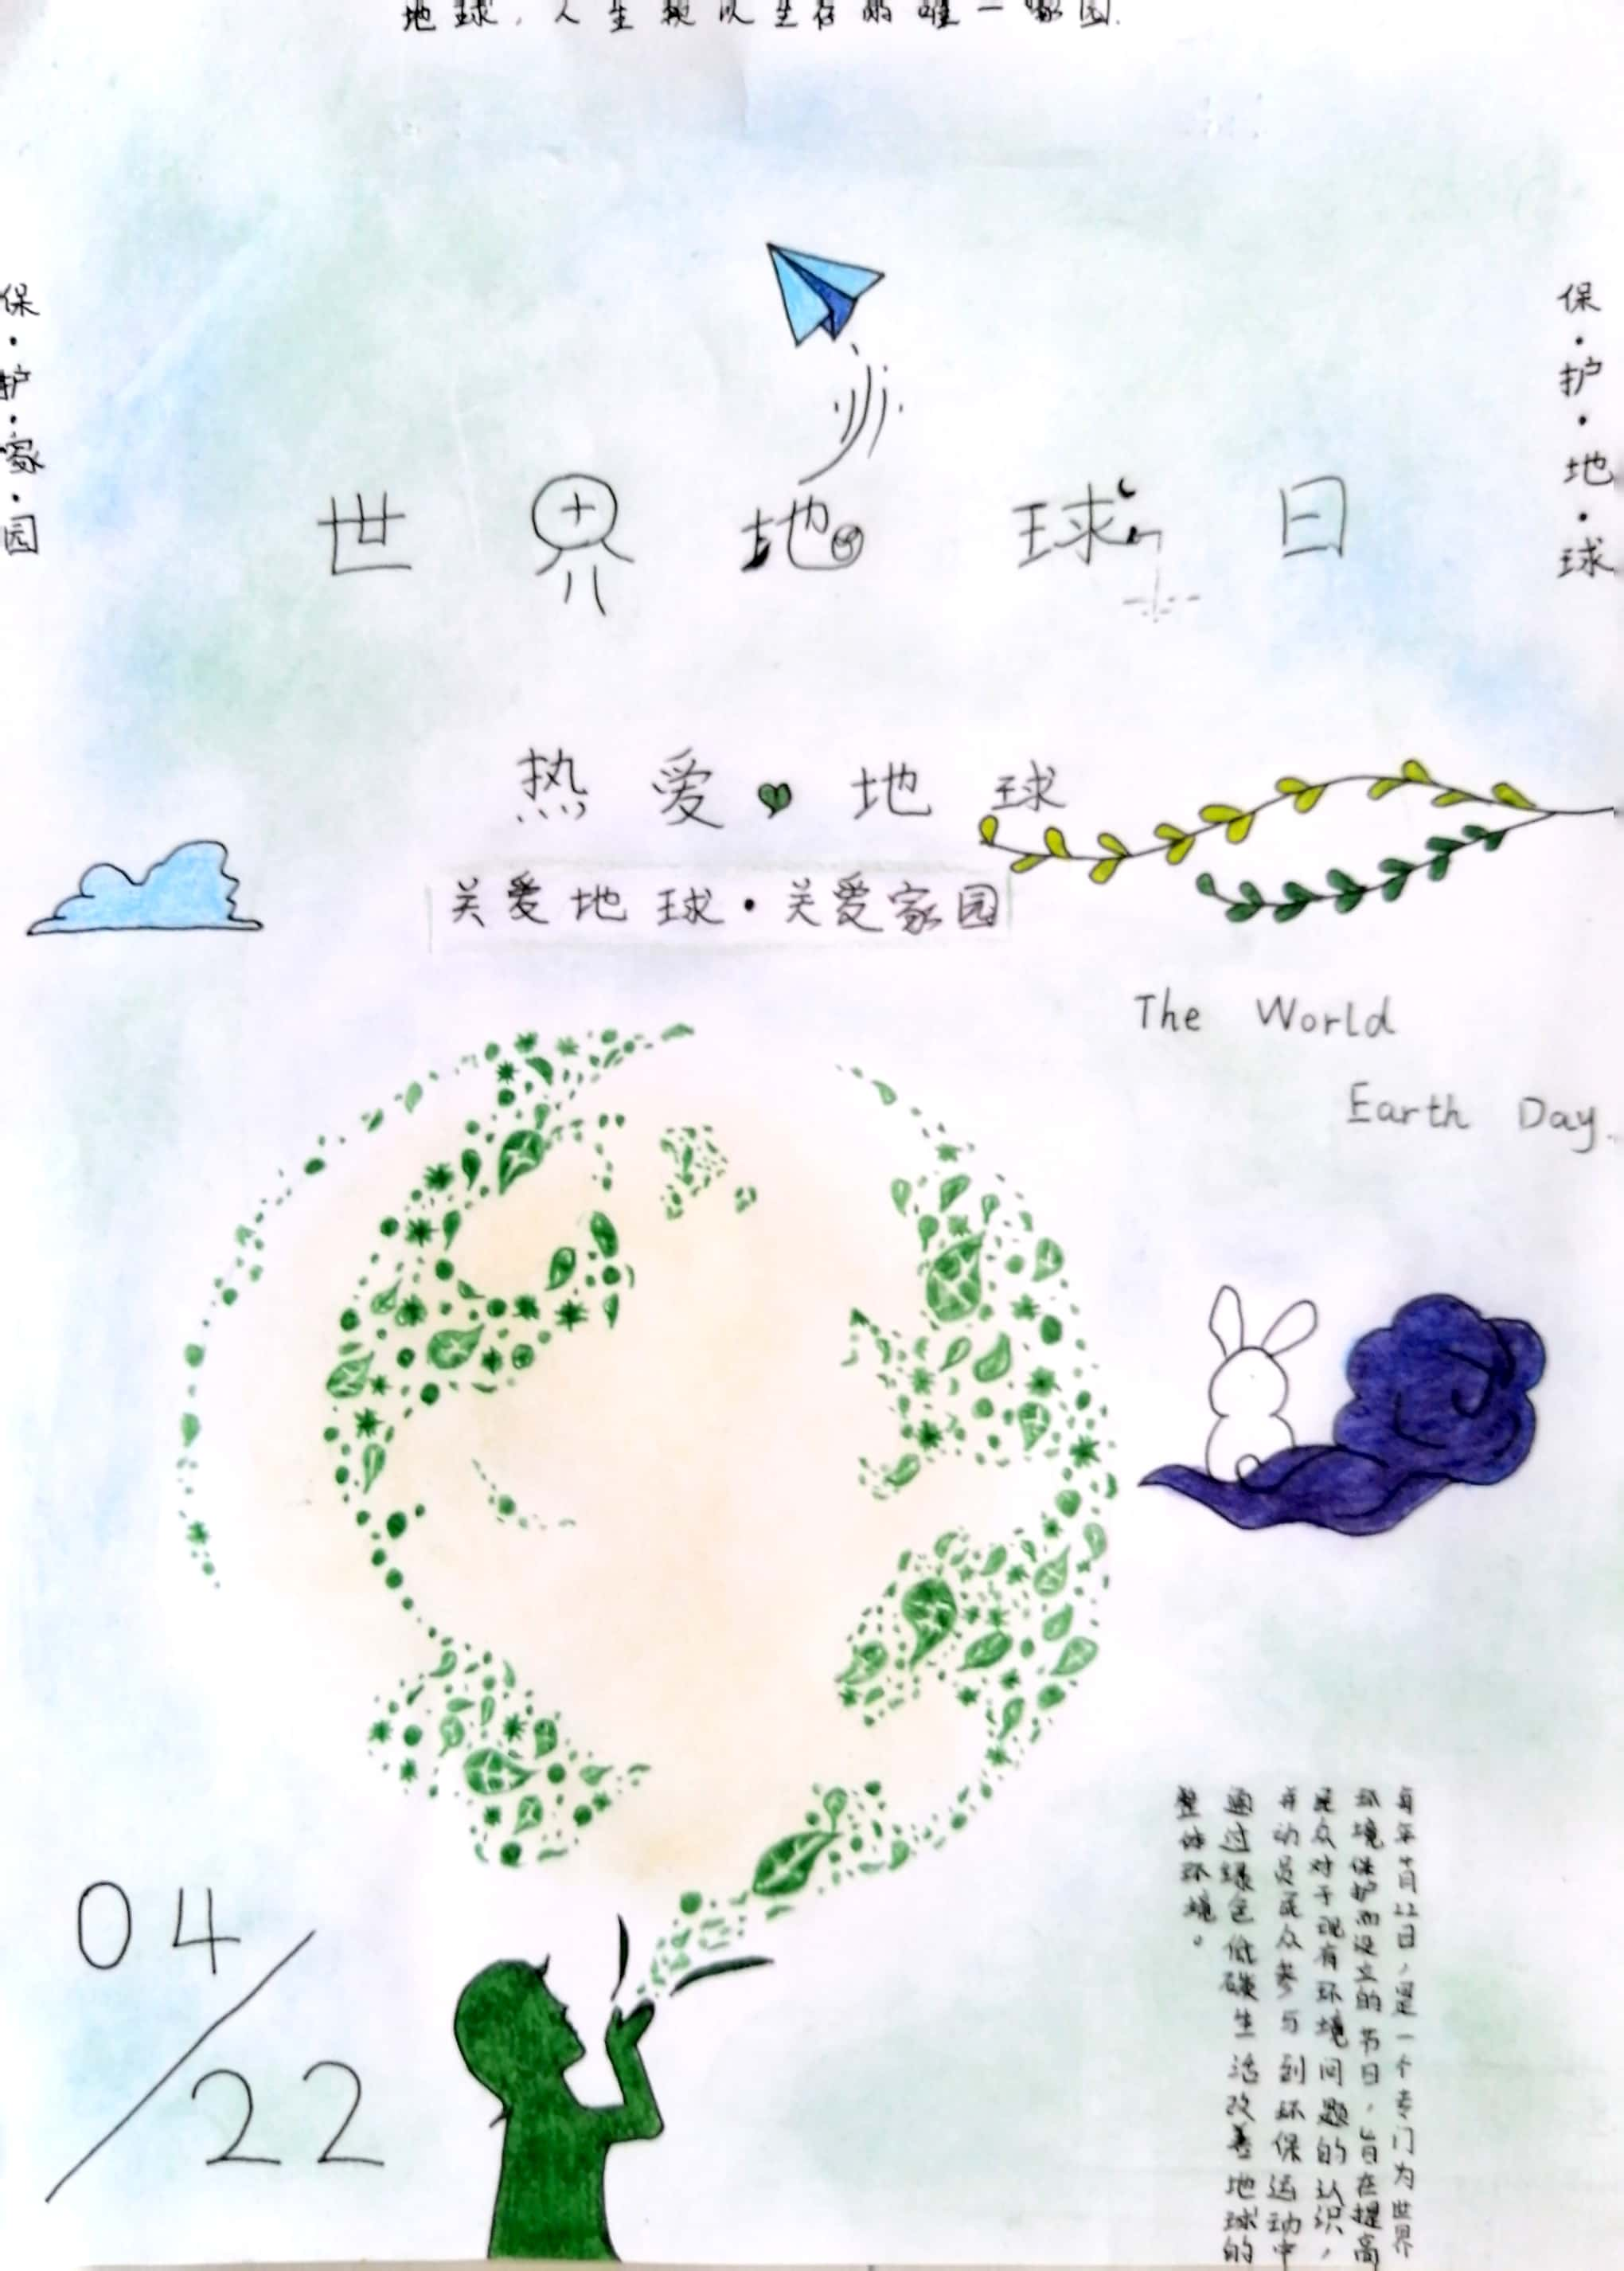 地球，人生赖以生存的唯一家园.
保·护·家·园
保·护·地·球
世界地球日
热爱地球
关爱地球·关爱家园
The World
Earth Day.
04/22
每年4月22日，是一个专门为世界
环境保护而设立的节日，旨在提高
民众对于现有环境问题的认识，
并动员民众参与到环保运动中
通过绿色低碳生活改善地球的
整体环境。